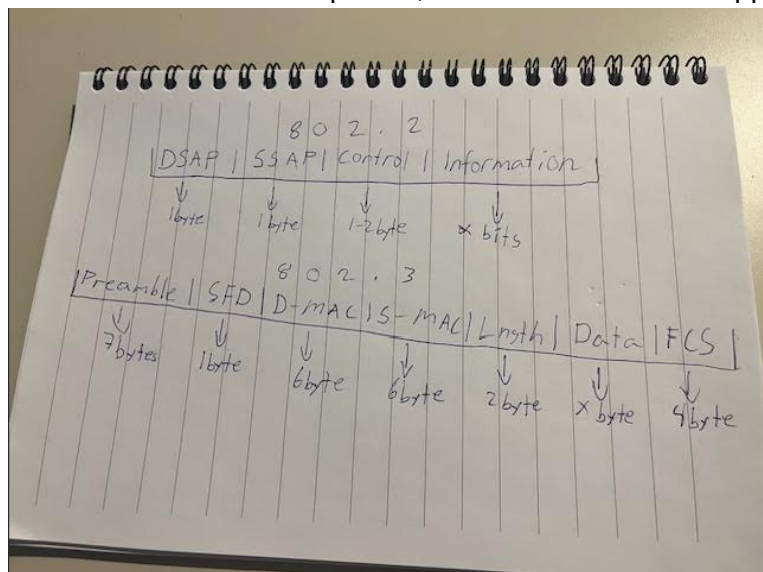 802.2
|DSAP|SSAP|Control|Information|
1byte 1byte 1-2byte x bits
802.3
|Preamble|SFD|D-MAC|S-MAC|Lngth|Data|FCS|
7bytes 1byte 6byte 6byte 2byte x byte 4byte